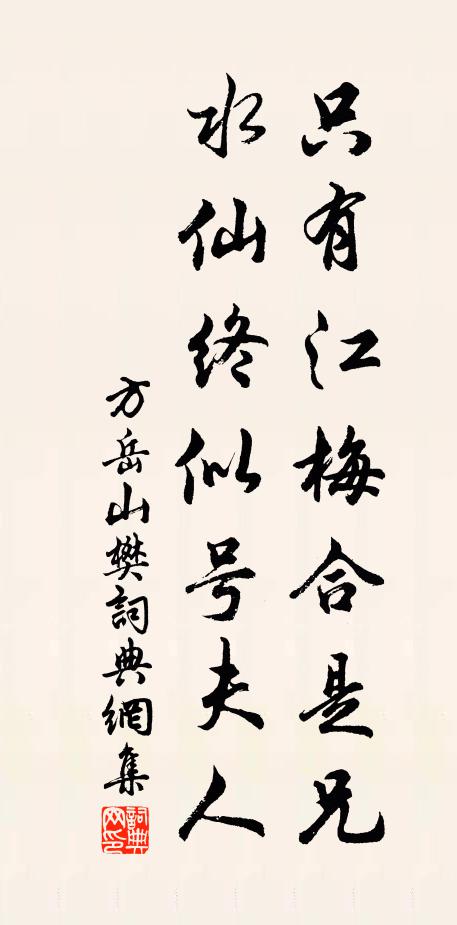 只有江梅合是兄
水仙终似号夫人
方岳山樊詞典網集
詞典网印